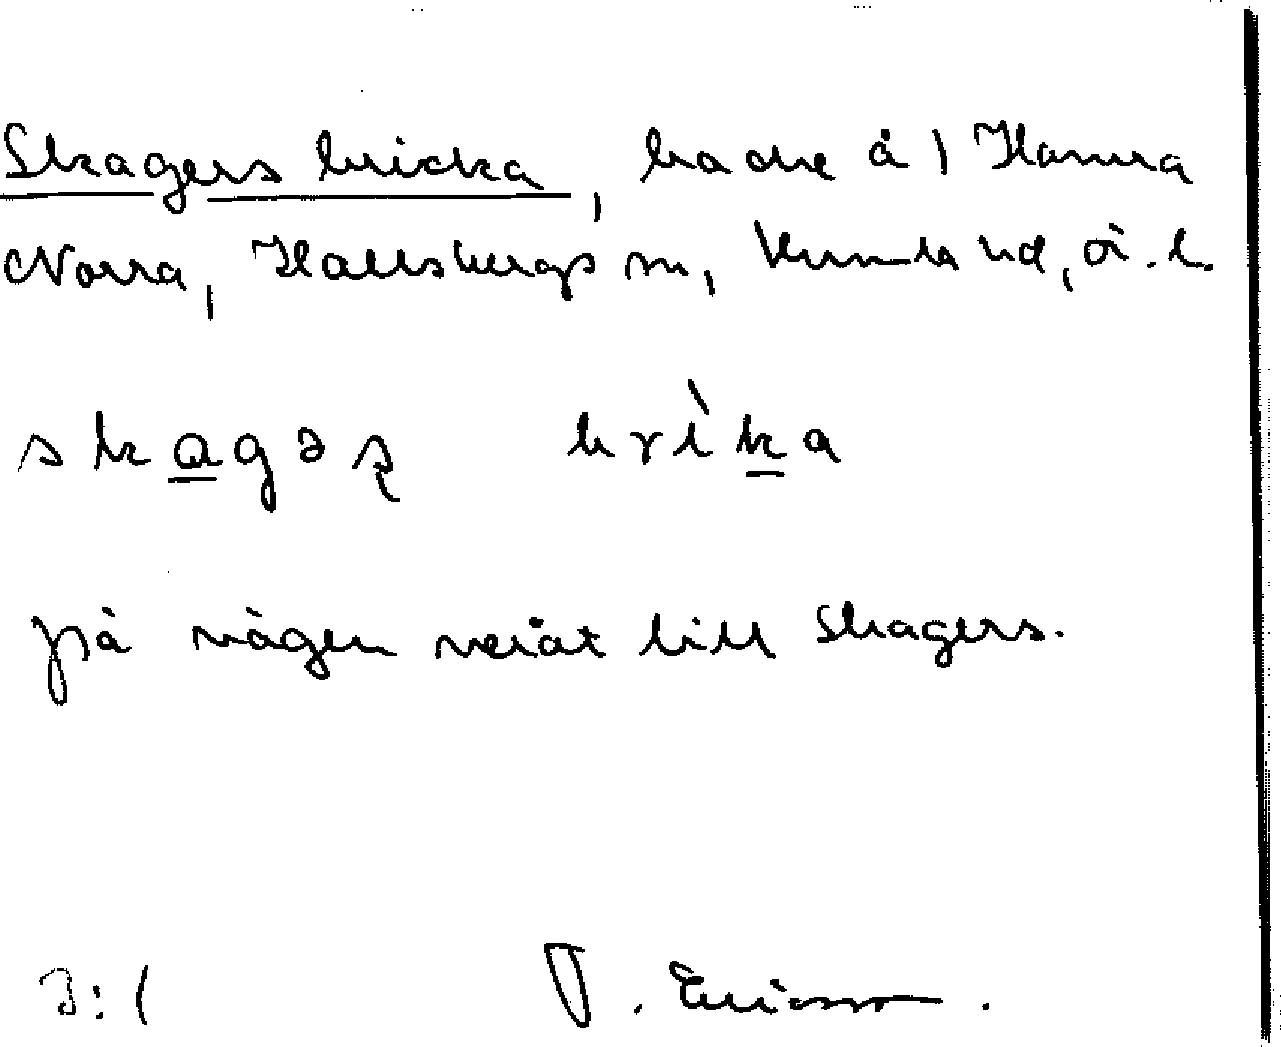 Skagers bricka, backe å 1 Hamra
Norra, Hallsbergs sn, Kumla hd, Ö. l.
skagəʂ brìka
på vägen neråt till Skagers.
3:1 Ericson.